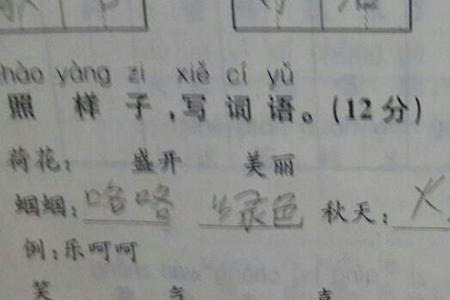 zhào yàng zi xiě cí yǔ
照 样 子,写 词 语。(12 分)
荷花: 盛开 美丽
蝈蝈:咯咯 绿色 秋天:火
例:乐呵呵
笑